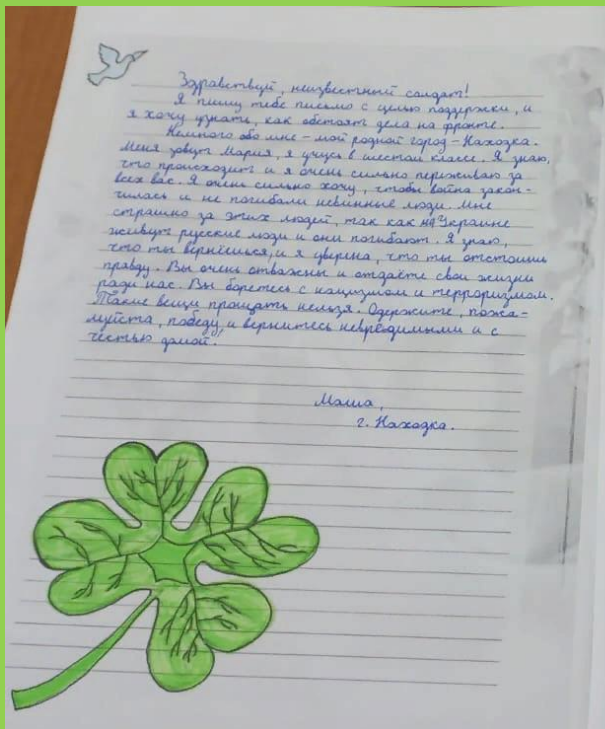 Здравствуй, неизвестный солдат!
Я пишу тебе письмо с целью поддержки, и
я хочу узнать, как обстоят дела на фронте.
Немного обо мне – мой родной город – Находка.
Меня зовут Мария, я учусь в шестом классе. Я знаю,
что происходит и я очень сильно переживаю за
всех вас. Я очень сильно хочу, чтобы война закон-
чилась и не погибали невинные люди. Мне
страшно за этих людей, так как на Украине
живут русские люди и они погибают. Я знаю,
что ты вернёшься, и я уверена, что ты отстоишь
правду. Вы очень отважны и отдаёте свои жизни
ради нас. Вы боретесь с нацизмом и терроризмом.
Такие вещи прощать нельзя. Одержите, пожа-
луйста, победу и вернитесь невредимыми и с
честью домой!
Маша,
г. Находка.